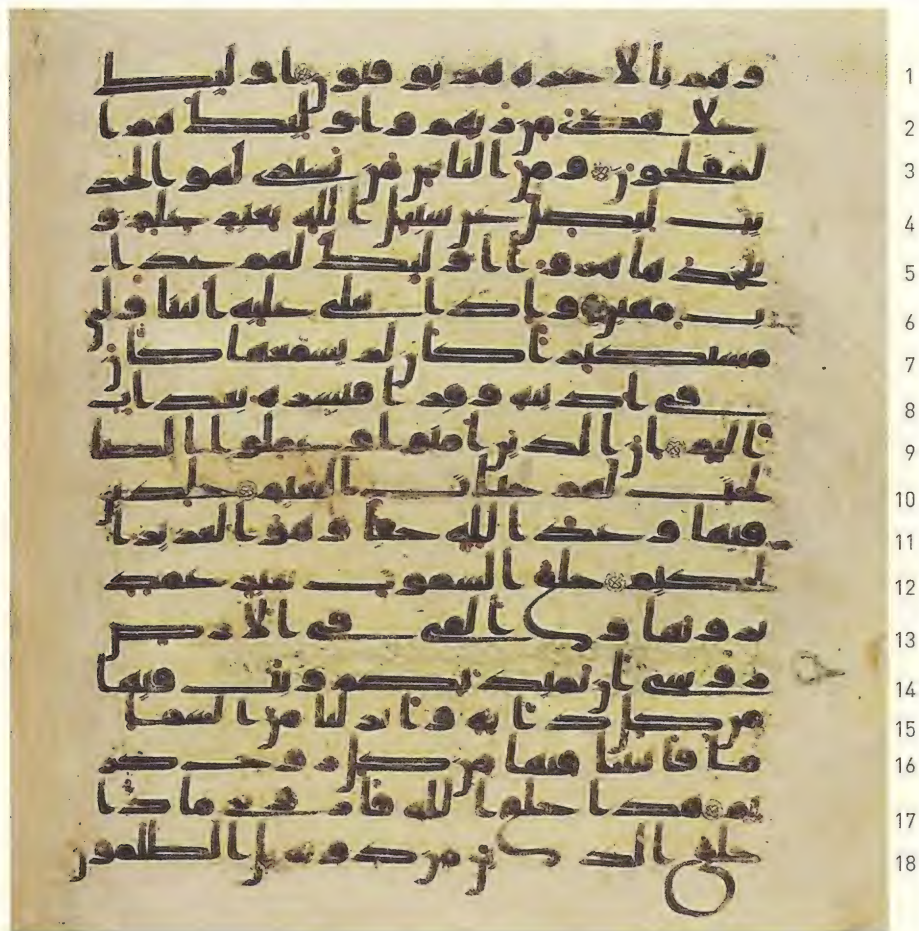 1 وهم بالاخره هم يوقنون اوليك
2 علا هدى من ربهم و اوليك هم ا
3 لمفلحون و من الناس من يشترى لهو الحد
4 يث ليضل عن سبيل الله بغير علم و
5 يتخذها هزوا اوليك لهم عذا
6 ب مهين و اذا تتلى عليه ايتنا ولى
7 مستكبرا كان لم يسمعها كان
8 فى اذنيه وقرا فبشره بعذاب
9 اليم ان الذين امنوا و عملوا الصا
10 لحت لهم جنات النعيم خلدين
11 فيها وعد الله حقا و هو العزيز ا
12 لحكيم خلق السموت بغير عمد
13 ترونها و القى فى الارض
14 روسى ان تميد بكم و بث فيها
15 من كل دابه و انزلنا من السما
16 ما فانبتنا فيها من كل زوج كر
17 يم هذا خلق الله فارونى ماذا
18 خلق الذين من دونه بل الظلمون